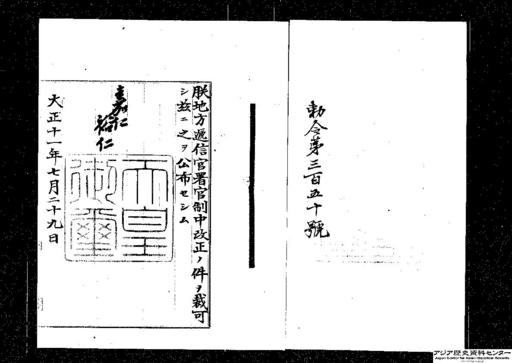 勅令第三百五十號
朕地方遞信官署官制中改正ノ件ヲ裁可
シ茲ニ之ヲ公布セシム
嘉仁
裕仁
天皇御璽
大正十一年七月二十九日
アジア歴史資料センター
Japan Center for Asian Historical Records